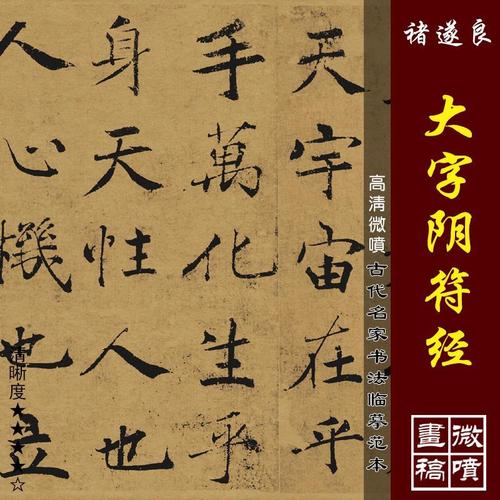 褚遂良
大字阴符经
微噴
畫稿
高清微噴古代名家书法临摹范本
天宇宙在乎
手萬化生乎
身天性人也
人心機也立
清晰度★★★★☆